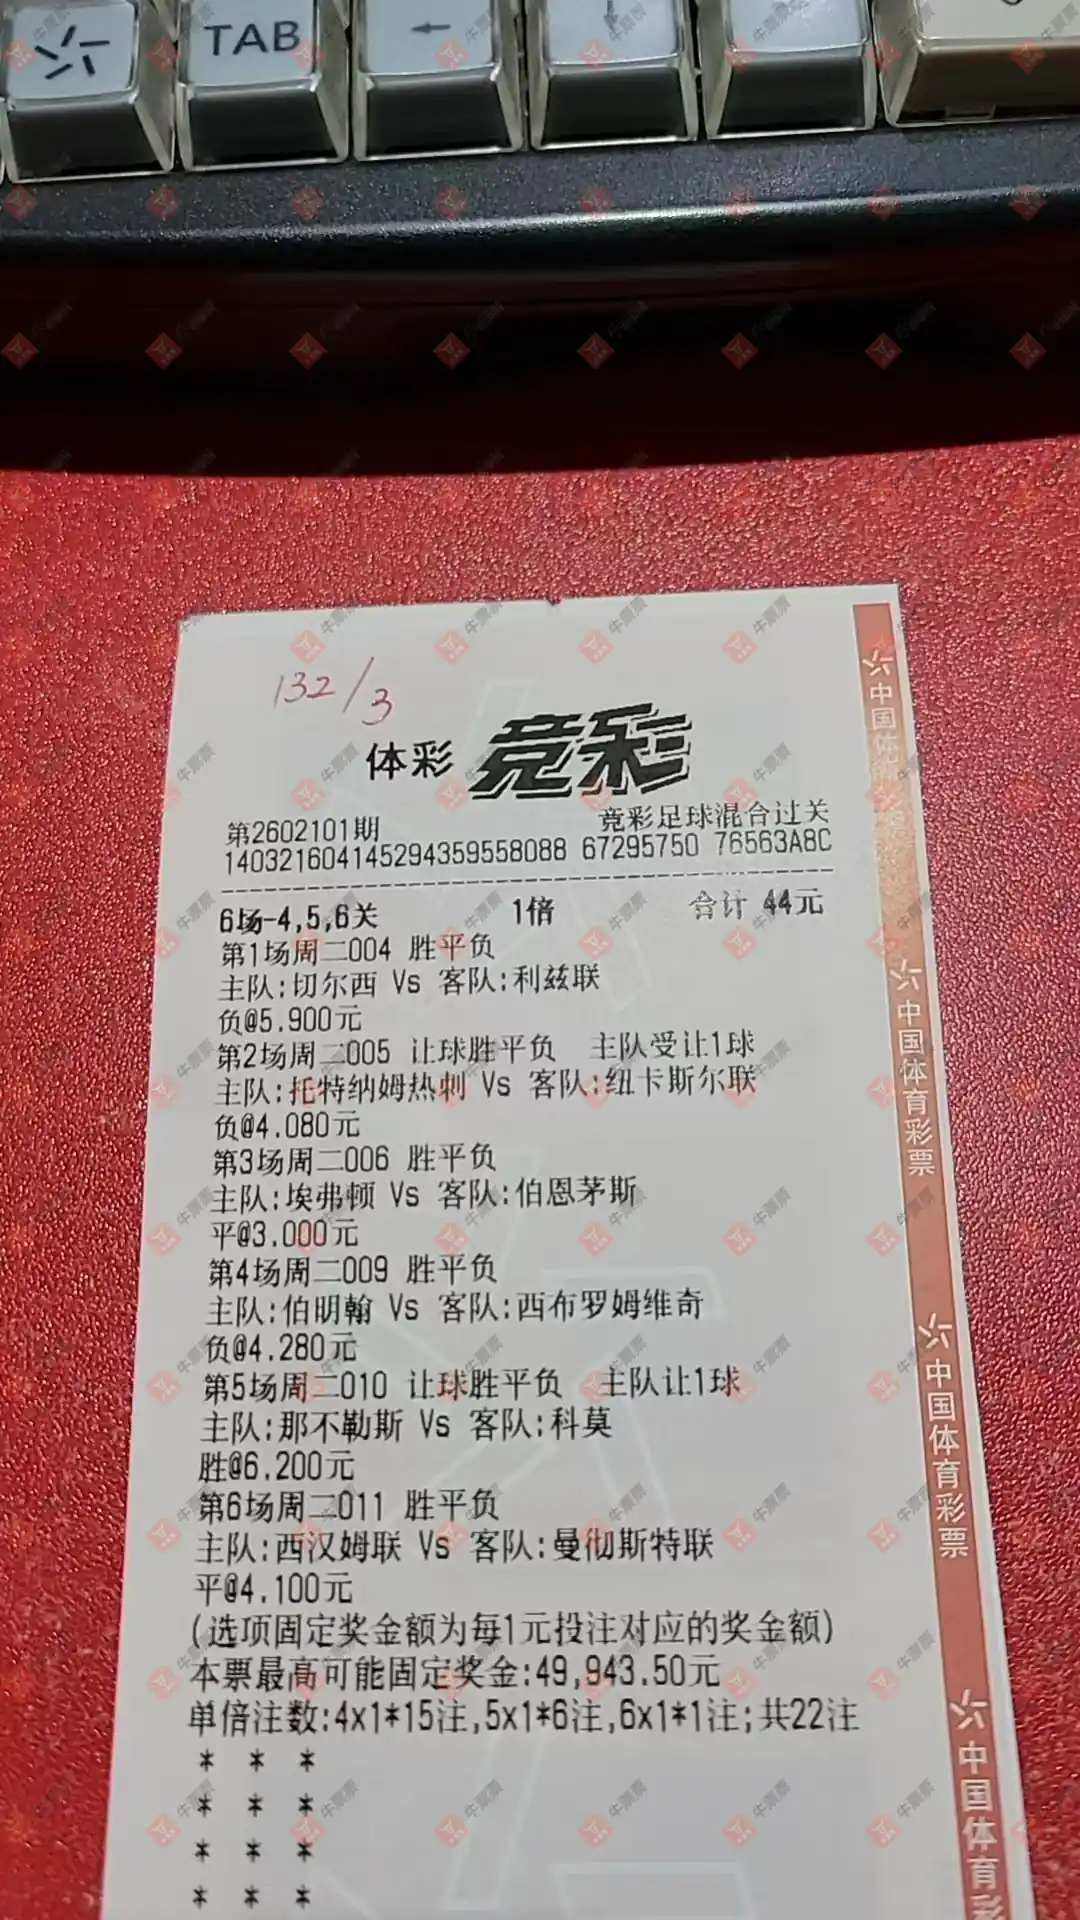 TAB
132/3
体彩 竞彩
第2602101期 竞彩足球混合过关
140321604145294359558088 67295750 76563A8C
6场-4,5,6关 1倍 合计 44元
第1场周二004 胜平负
主队:切尔西 Vs 客队:利兹联
负@5.900元
第2场周二005 让球胜平负 主队受让1球
主队:托特纳姆热刺 Vs 客队:纽卡斯尔联
负@4.080元
第3场周二006 胜平负
主队:埃弗顿 Vs 客队:伯恩茅斯
平@3.000元
第4场周二009 胜平负
主队:伯明翰 Vs 客队:西布罗姆维奇
负@4.280元
第5场周二010 让球胜平负 主队让1球
主队:那不勒斯 Vs 客队:科莫
胜@6.200元
第6场周二011 胜平负
主队:西汉姆联 Vs 客队:曼彻斯特联
平@4.100元
(选项固定奖金额为每1元投注对应的奖金额)
本票最高可能固定奖金:49,943.50元
单倍注数:4x1*15注,5x1*6注,6x1*1注;共22注
* * *
* * *
* * *
* * *
中国体育彩票
中国体育彩票
中国体育彩
牛票票